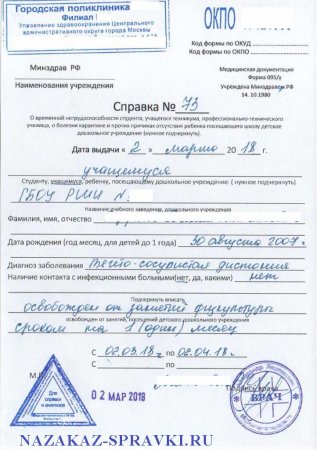 Городская поликлиника
Филиал 1
Управление здравоохранения Центрального
административного округа города Москвы
ОКПО
Код формы по ОКУД
Код формы по ОКПО
Минздрав РФ
Наименования учреждения
Медицинская документация
Форма 095/у
Утверждена Минздравом РФ
14. 10.1980
Справка № 73
О временной нетрудоспособности студента, учащегося техникума, профессионально-технического
училища, о болезни карантине и прочих причинах отсутствия ребенка посещающего школу детское
дошкольное учреждение (нужное подчеркнуть).
Дата выдачи « 2 » марта 2018 г.
учащемуся
Студенту, учащемуся, ребенку, посещающему дошкольное учреждение. ( нужное подчеркнуть)
ГБОУ
Название учебного заведения, дошкольного учреждения
Фамилия, имя, отчество
Дата рождения (год месяц, для детей до 1 года) 30 августа 2007 г
Диагноз заболевания Вегето-сосудистая дистония
Наличие контакта с инфекционными больными(нет, да, какими) нет
Подчеркнуть вписать
освобожден от занятий физкультуры
освобожден от занятий, посещений детского дошкольного учреждения
сроком на 1 (один) месяц
С 02.03.18 по 02.04.18 г.
С по
М.П.
02 МАР 2018
Подпись врача
Для
справок
и анализов
ВРАЧ
NAZAKAZ-SPRAVKI.RU